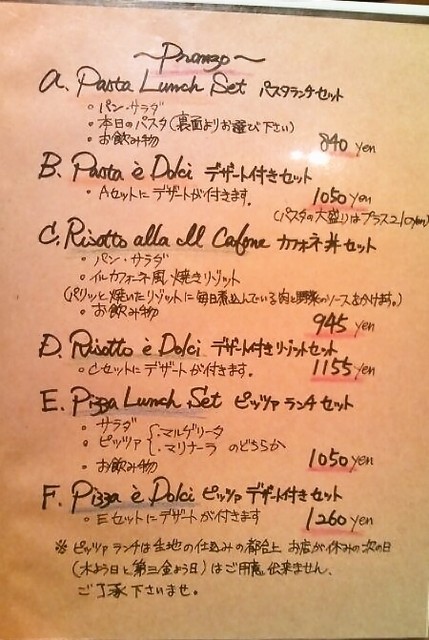 ~Pranzo~
A. Pasta Lunch Set パスタランチセット
・パン・サラダ
・本日のパスタ(裏面よりお選び下さい)
・お飲み物
840 yen
B. Pasta è Dolci デザート付きセット
・Aセットにデザートが付きます。
1050 yen
(パスタの大盛りはプラス210yen)
C. Risotto alla Il Cafone カフォネ丼セット
・パン・サラダ
・イルカフォーネ風 焼きリゾット
(パリッと焼いたリゾットに毎日煮込んでいる肉と野菜のソースをかけます。)
・お飲み物
945 yen
D. Risotto è Dolci デザート付きリゾットセット
・Cセットにデザートが付きます。
1155 yen
E. Pizza Lunch Set ピッツァ ランチ セット
・サラダ
・ピッツァ{・マルゲリータ ・マリナーラ のどちらか
・お飲み物
1050 yen
F. Pizza è Dolci ピッツァ デザート付きセット
・Eセットにデザートが付きます
1260 yen
※ ピッツァ ランチは生地の仕込みの都合上 お店が休みの次の日
(木よう日と第三金よう日)はご用意出来ません。
ご了承 下さいませ。